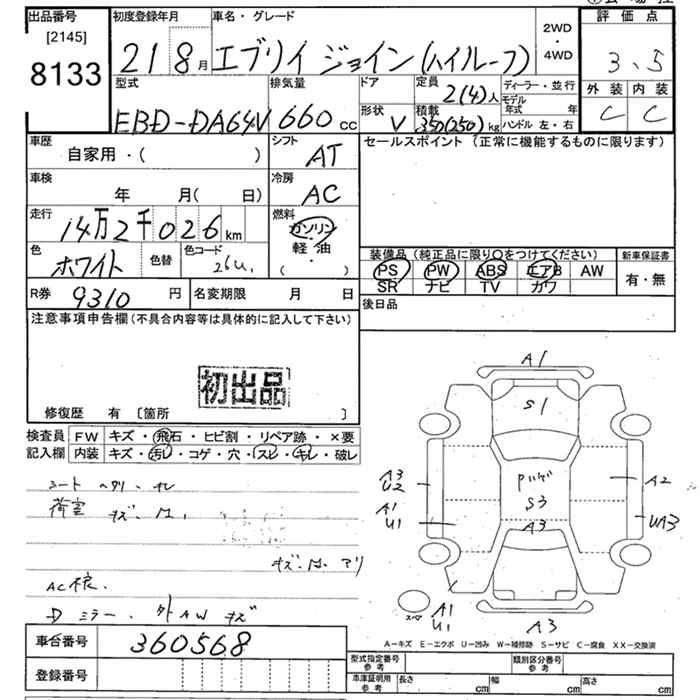 出品番号
[2145]
8133
初度登録年月
21 8月
車名・グレード
エブリイ ジョイン (ハイルーフ)
2WD
・
4WD
評価点
3.5
外装 内装
C C
型式
EBD-DA64V
排気量
660 cc
ドア
形状
V
定員
2(4)人
積載
350(250)kg
ディーラー・並行
モデル年式 年
ハンドル 左・右
車歴
自家用・( )
シフト
AT
車検
年 月( 日)
冷房
AC
走行
14万2千026km
燃料
ガソリン
・
軽・油
( )
色
ホワイト
色替
色コード
26U
R券
9310円
名変期限 月 日
セールスポイント (正常に機能するものに限ります)
装備品 (純正品に限り○をつけてください)
PS PW ABS エアB AW
SR ナビ TV カワ
新車保証書
有・無
後日品
注意事項申告欄(不具合内容等は具体的に記入して下さい)
初出品
修復歴 有 〔箇所 〕
検査員
記入欄
FW キズ・飛石・ヒビ割・リペア跡・×要
内装 キズ・汚レ・コゲ・穴・スレ・キレ・破レ
シート ヘタリ
荷室 キズ・
キズ・ アリ
D ミラー・ AW キズ
A1
S1
Pハゲ
S3
A3
A3
U2
A1
U1
A2
UA3
スペア
A1
U1
A3
A-キズ E-エクボ U-凹み W-補修跡 S-サビ C-腐食 XX-交換済
車台番号
360568
登録番号
型式指定番号
参考
類別区分番号
参考
車庫証明用
参考
長さ cm
幅 cm
高さ cm